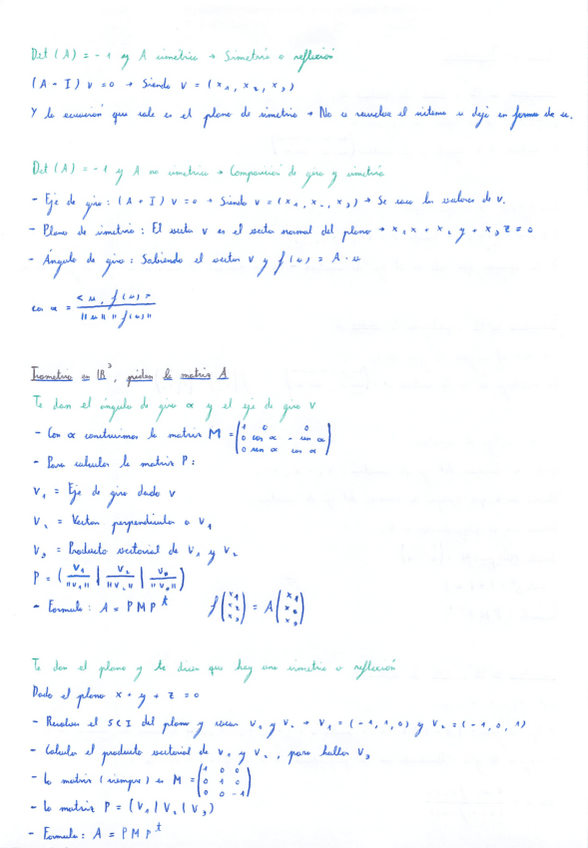 Det (A) = -1 y A simétrica → Simetría o reflexión
(A - I) v = 0 → Siendo v = (x₁, x₂, x₃)
Y la ecuación que sale es el plano de simetría → No se resuelve el sistema se deja en forma de ec.
Det (A) = -1 y A no simétrica → Composición de giro y simetría
- Eje de giro: (A + I) v = 0 → Siendo v = (x₁, x₂, x₃) → Se saca los valores de v.
- Plano de simetría: El vector v es el vector normal del plano → x₁ x + x₂ y + x₃ z = 0
- Ángulo de giro: Sabiendo el vector v y f(u) = A · u
cos α = <u, f(u)> / ||u|| ||f(u)||
Isometría en ℝ³, piden la matriz A
Te dan el ángulo de giro α y el eje de giro v
- Con α construimos la matriz M = (1 0 0
0 cos α - sen α
0 sen α cos α)
- Para calcular la matriz P:
v₁ = Eje de giro dado v
v₂ = Vector perpendicular a v₁
v₃ = Producto vectorial de v₁ y v₂
P = (v₁/||v₁|| | v₂/||v₂|| | v₃/||v₃||)
- Formula: A = P M Pᵗ f(x₁ x₂ x₃) = A (x₁ x₂ x₃)
Te dan el plano y te dicen que hay una simetría o reflexión
Dado el plano x + y + z = 0
- Resolver el SCI del plano y sacar v₁ y v₂ → v₁ = (-1, 1, 0) y v₂ = (-1, 0, 1)
- Calcular el producto vectorial de v₁ y v₂, para hallar v₃
- La matriz (siempre) es M = (1 0 0
0 1 0
0 0 -1)
- La matriz P = (v₁ | v₂ | v₃)
- Formula: A = P M Pᵗ